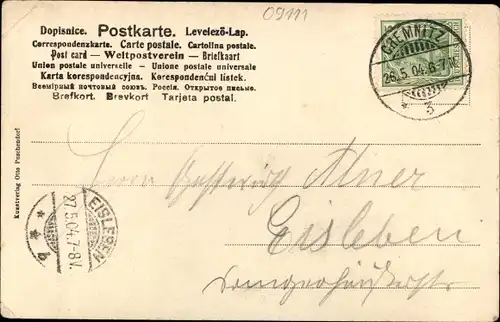 09111
Dopisnice. Postkarte. Levelező-Lap.
Correspondenzkarte. Carte postale. Cartolina postale.
Post card — Weltpostverein — Briefkaart
Union postale universelle — Unione postale universale
Karta korespondencyjna. Korespondenční lístek.
Всемірный почтовый союзъ. Россія. Открытое письмо.
Brefkort. Brevkort. Tarjeta postal.
CHEMNITZ
26.5.04.6-7.N.
* 3
Kunstverlag Otto Puschendorf
Herrn
Eisleben
EISLEBEN
27.5.04.7-8V.
* b *